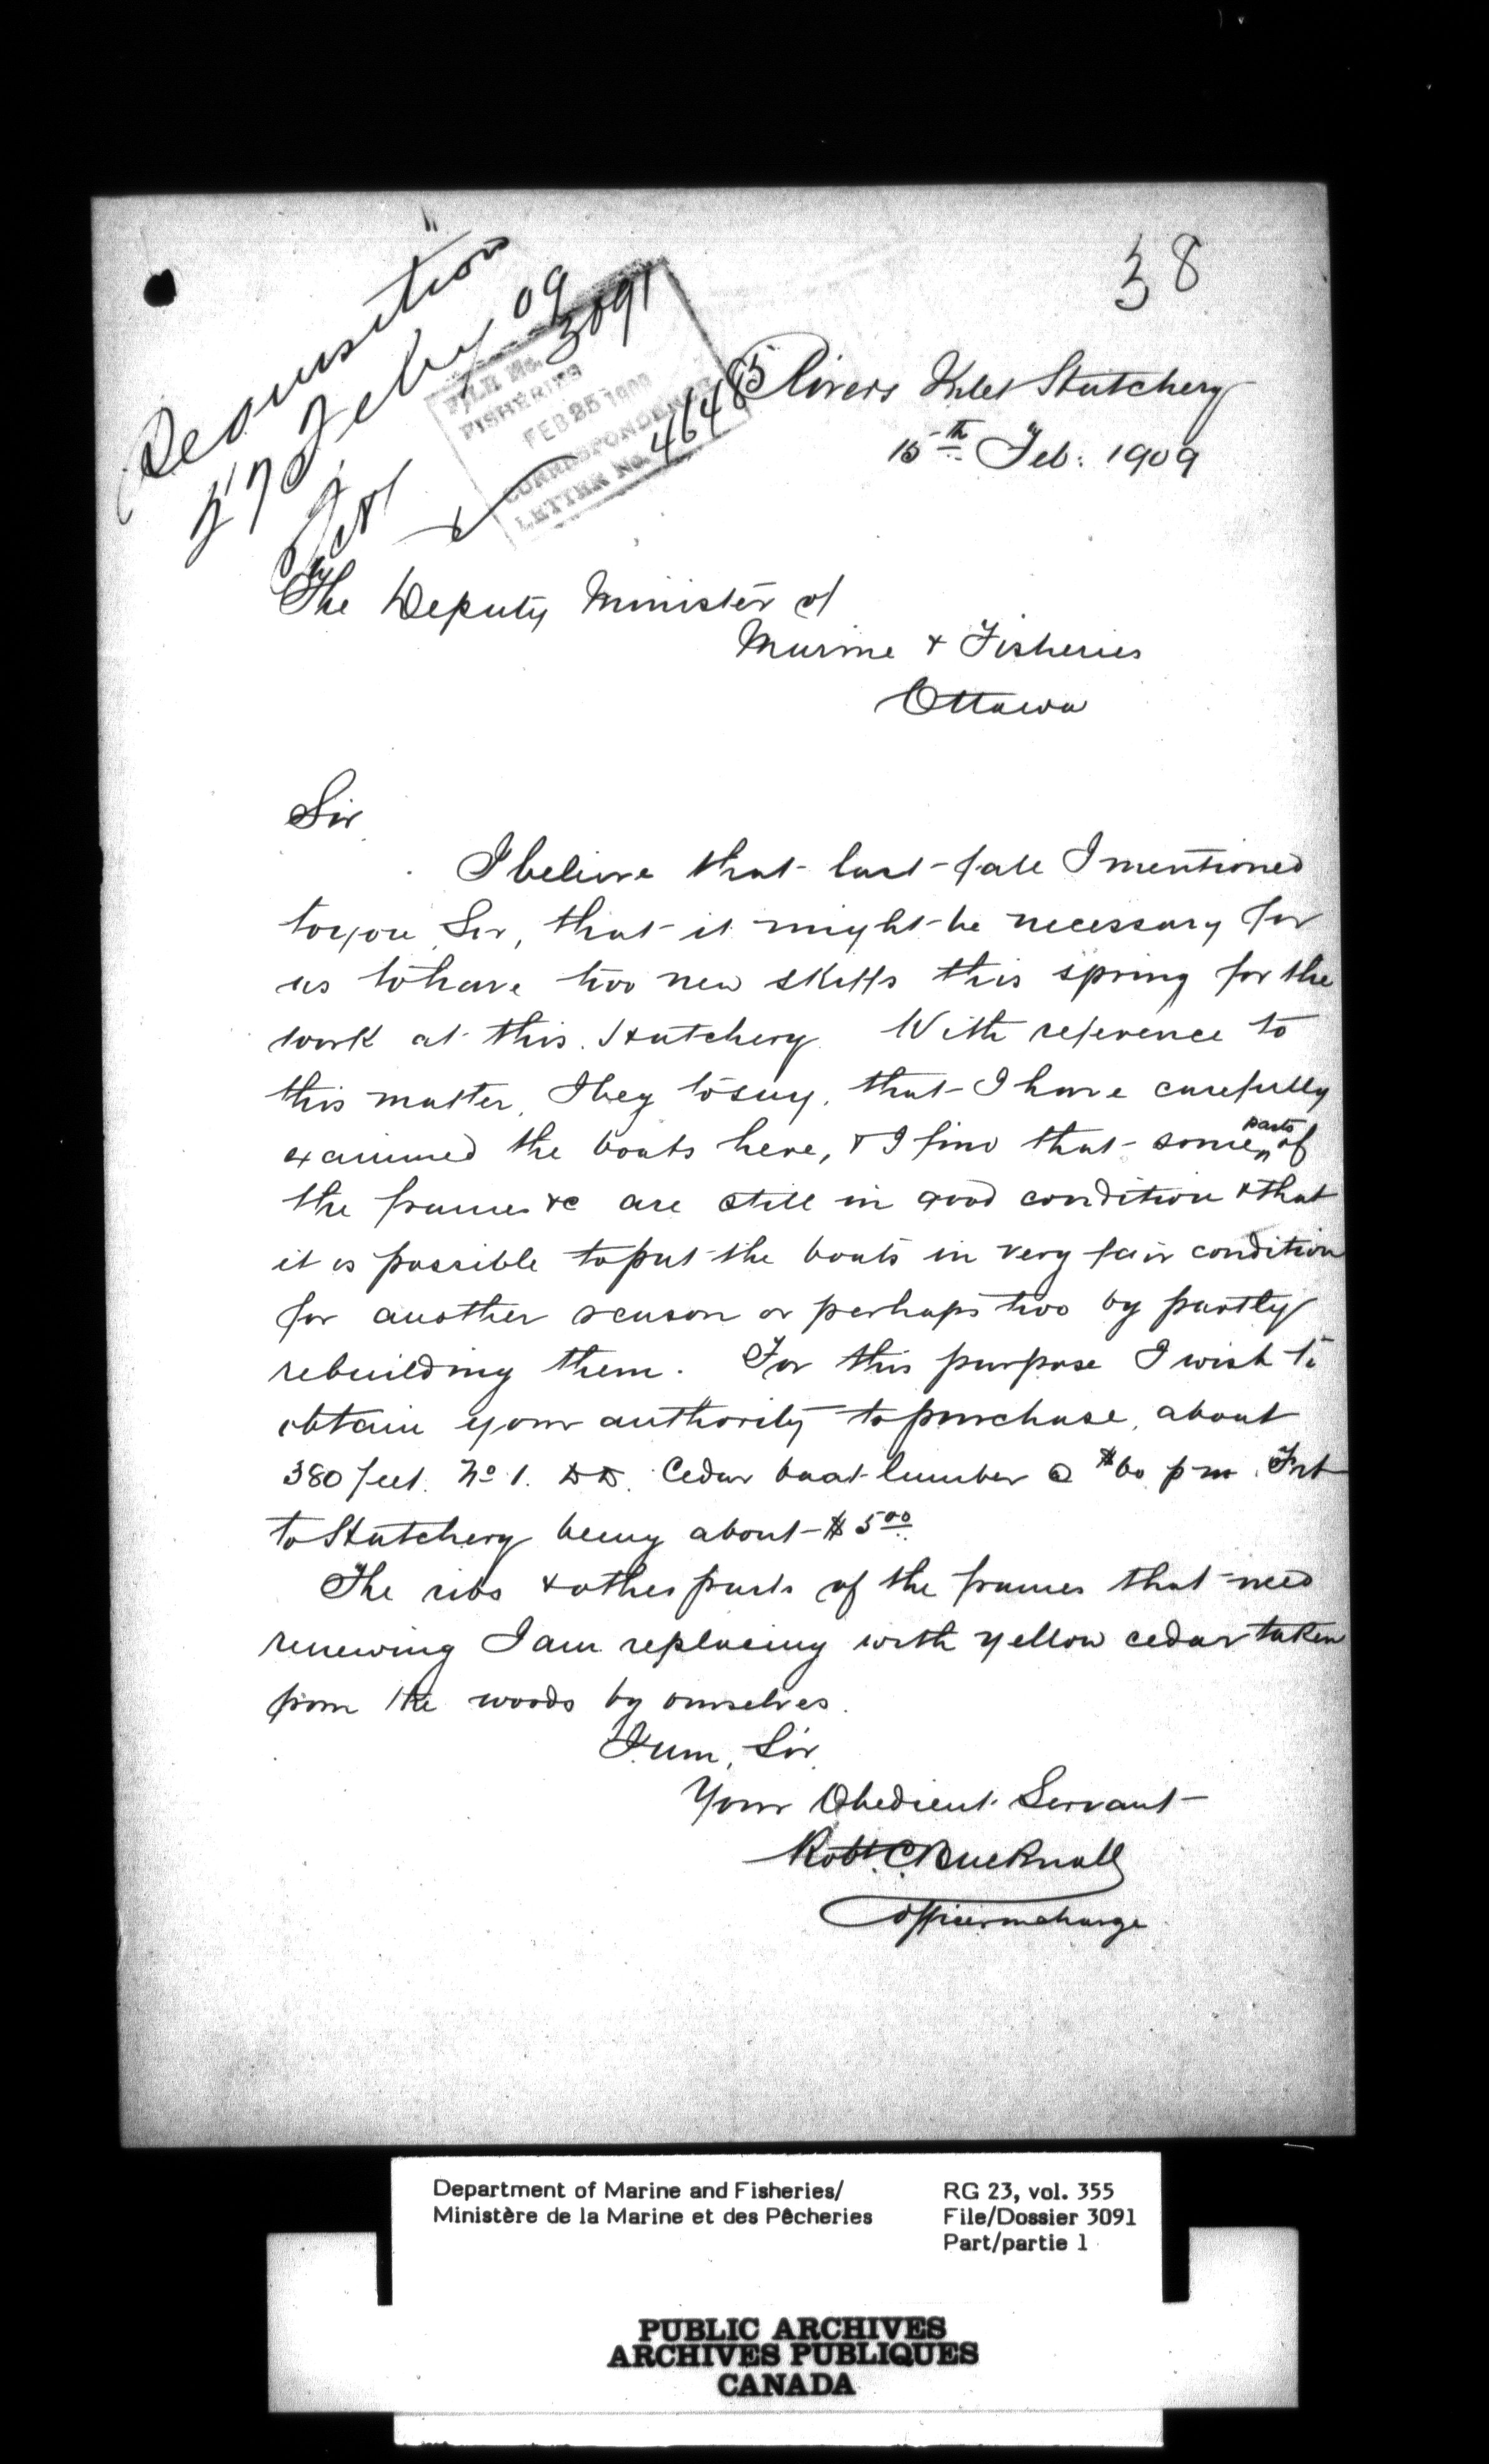 38
Requisition
27 Feby 09
FILE No. 3091
FISHERIES
FEB 25 1909
CORRESPONDENCE
LETTER No. 46485
Rivers Inlet Hatchery
15th Feb: 1909
The Deputy Minister of
Marine & Fisheries
Ottawa
Sir
I believe that last fall I mentioned
to you Sir, that it might be necessary for
us to have two new skiffs this spring for the
work at this Hatchery. With reference to
this matter, I beg to say, that I have carefully
examined the boats here, & I find that some parts of
the frames &c are still in good condition & that
it is possible to put the boats in very fair condition
for another season or perhaps two by partly
rebuilding them. For this purpose I wish to
obtain your authority to purchase, about
380 feet No 1. DD. Cedar boat lumber @ $60 p m. Frt
to Hatchery being about $5.00
The ribs & other parts of the frames that need
renewing I am replacing with yellow cedar taken
from the woods by ourselves.
I am, Sir,
Your Obedient Servant
Robt. C. Bucknall
Officer in charge
Department of Marine and Fisheries/
Ministère de la Marine et des Pêcheries
RG 23, vol. 355
File/Dossier 3091
Part/partie 1
PUBLIC ARCHIVES
ARCHIVES PUBLIQUES
CANADA